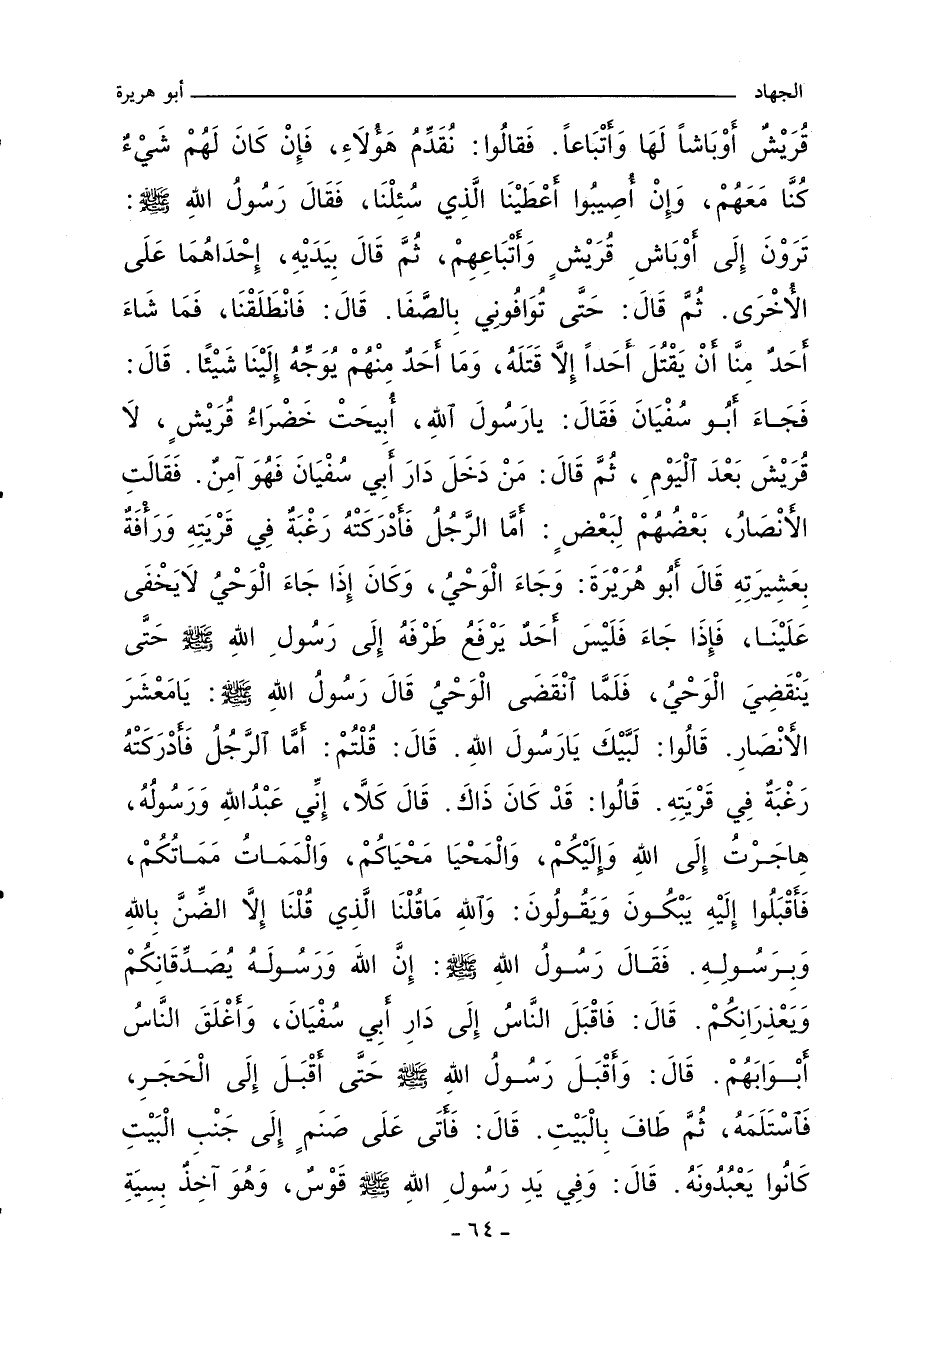 الجهاد ــــــــــــــــــــ أبو هريرة
قُرَيْشٌ أَوْبَاشاً لَهَا وَأَتْبَاعاً. فَقالُوا: نُقَدِّمُ هَؤُلَاءِ، فَإِنْ كَانَ لَهُمْ شَيْءٌ
كُنَّا مَعَهُمْ، وَإِنْ أُصِيبُوا أَعْطَيْنَا الَّذِي سُئِلْنَا، فَقَالَ رَسُولُ اللهِ ﷺ:
تَرَوْنَ إِلَى أَوْبَاشِ قُرَيْشٍ وَأَتْبَاعِهِمْ، ثُمَّ قَالَ بِيَدَيْهِ، إِحْدَاهُمَا عَلَى
الأُخْرَى. ثُمَّ قَالَ: حَتَّى تُوَافُونِي بِالصَّفَا. قَالَ: فَانْطَلَقْنَا، فَمَا شَاءَ
أَحَدٌ مِنَّا أَنْ يَقْتُلَ أَحَداً إِلَّا قَتَلَهُ، وَمَا أَحَدٌ مِنْهُمْ يُوَجِّهُ إِلَيْنَا شَيْئًا. قَالَ:
فَجَاءَ أَبُو سُفْيَانَ فَقَالَ: يارَسُولَ ٱللهِ، أُبِيحَتْ خَضْرَاءُ قُرَيْشٍ، لَا
قُرَيْشَ بَعْدَ ٱلْيَوْمِ، ثُمَّ قَالَ: مَنْ دَخَلَ دَارَ أَبِي سُفْيَانَ فَهُوَ آمِنٌ. فَقَالَتِ
الأَنْصَارُ، بَعْضُهُمْ لِبَعْضٍ: أَمَّا الرَّجُلُ فَأَدْرَكَتْهُ رَغْبَةٌ فِي قَرْيَتِهِ وَرَأْفَةٌ
بِعَشِيرَتِهِ قَالَ أَبُو هُرَيْرَةَ: وَجَاءَ الْوَحْيُ، وَكَانَ إِذَا جَاءَ الْوَحْيُ لَايَخْفَى
عَلَيْنَا، فَإِذَا جَاءَ فَلَيْسَ أَحَدٌ يَرْفَعُ طَرْفَهُ إِلَى رَسُولِ اللهِ ﷺ حَتَّى
يَنْقَضِيَ الْوَحْيُ، فَلَمَّا ٱنْقَضَى الْوَحْيُ قَالَ رَسُولُ اللهِ ﷺ: يَامَعْشَرَ
الأَنْصَارِ. قَالُوا: لَبَّيْكَ يَارَسُولَ اللهِ. قَالَ: قُلْتُمْ: أَمَّا ٱلرَّجُلُ فَأَدْرَكَتْهُ
رَغْبَةٌ فِي قَرْيَتِهِ. قَالُوا: قَدْ كَانَ ذَاكَ. قَالَ كَلَّا، إِنِّي عَبْدُاللهِ وَرَسُولُهُ،
هاجَرْتُ إِلَى اللهِ وَإِلَيْكُمْ، وَالْمَحْيَا مَحْيَاكُمْ، وَالْمَمَاتُ مَمَاتُكُمْ،
فَأَقْبَلُوا إِلَيْهِ يَبْكُونَ وَيَقُولُونَ: وَٱللهِ مَاقُلْنَا الَّذِي قُلْنَا إِلَّا الضِّنَّ بِاللهِ
وَبِرَسُولِهِ. فَقَالَ رَسُولُ اللهِ ﷺ: إِنَّ اللهَ وَرَسُولَهُ يُصَدِّقَانِكُمْ
وَيَعْذِرَانِكُمْ. قَالَ: فَاقْبَلَ النَّاسُ إِلَى دَارِ أَبِي سُفْيَانَ، وَأَغْلَقَ النَّاسُ
أَبْوَابَهُمْ. قَالَ: وَأَقْبَلَ رَسُولُ اللهِ ﷺ حَتَّى أَقْبَلَ إِلَى الْحَجَرِ،
فَٱسْتَلَمَهُ، ثُمَّ طَافَ بِالْبَيْتِ. قَالَ: فَأَتَى عَلَى صَنَمٍ إِلَى جَنْبِ الْبَيْتِ
كَانُوا يَعْبُدُونَهُ. قَالَ: وَفِي يَدِ رَسُولِ اللهِ ﷺ قَوْسٌ، وَهُوَ آخِذٌ بِسِيَةِ
- ٦٤ -